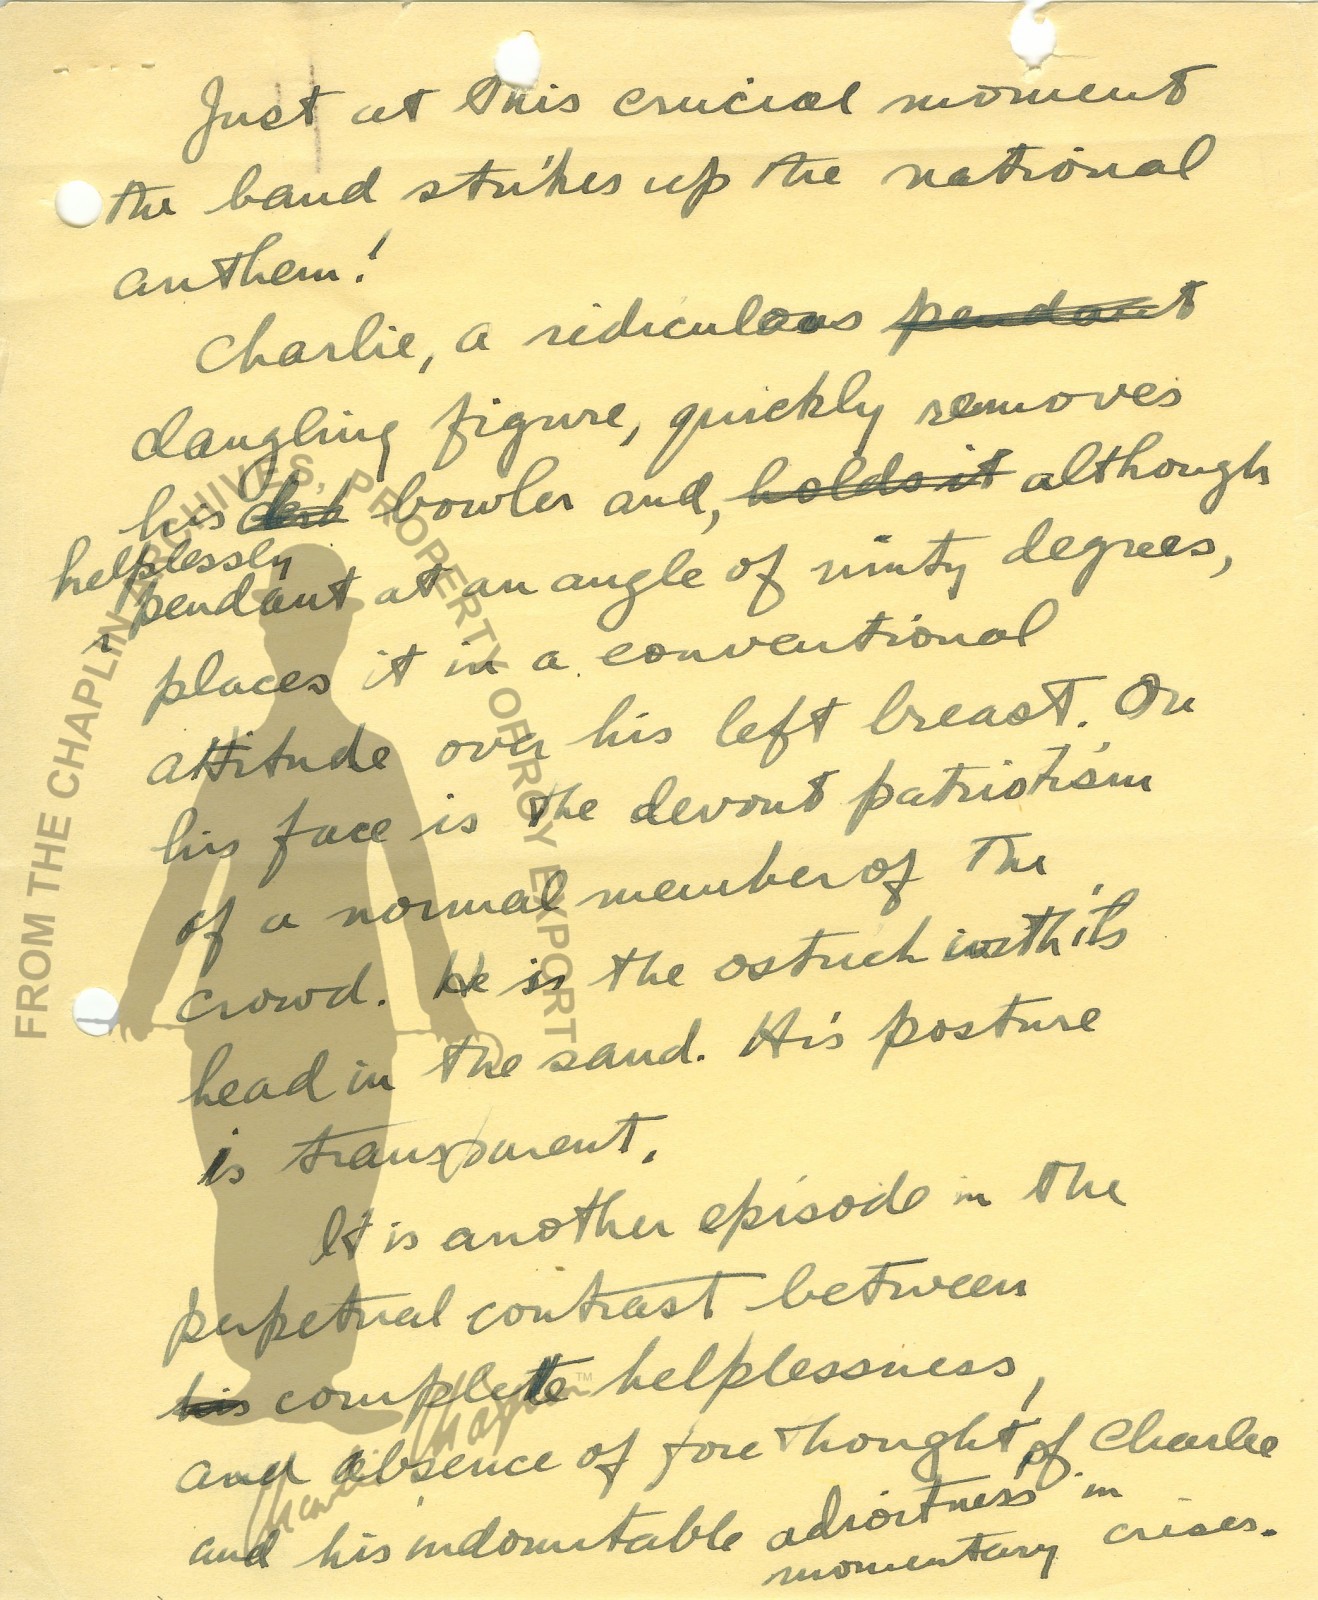 Just at this crucial moment
the band strikes up the national
anthem!
Charlie, a ridiculous pendant
dangling figure, quickly removes
his bowler and, holds it although
helplessly
pendant at an angle of ninty degrees,
places it in a conventional
attitude over his left breast. On
his face is the devout patriotism
of a normal member of the
crowd. He is the ostrich with its
head in the sand. His posture
is transparent.
It is another episode in the
perpetual contrast between
his complete helplessness,
and absence of fore thought, of Charlie
and his indomitable adroitness in
momentary crises.
FROM THE CHAPLIN ARCHIVES, PROPERTY OF ROY EXPORT
Charlie Chaplin™